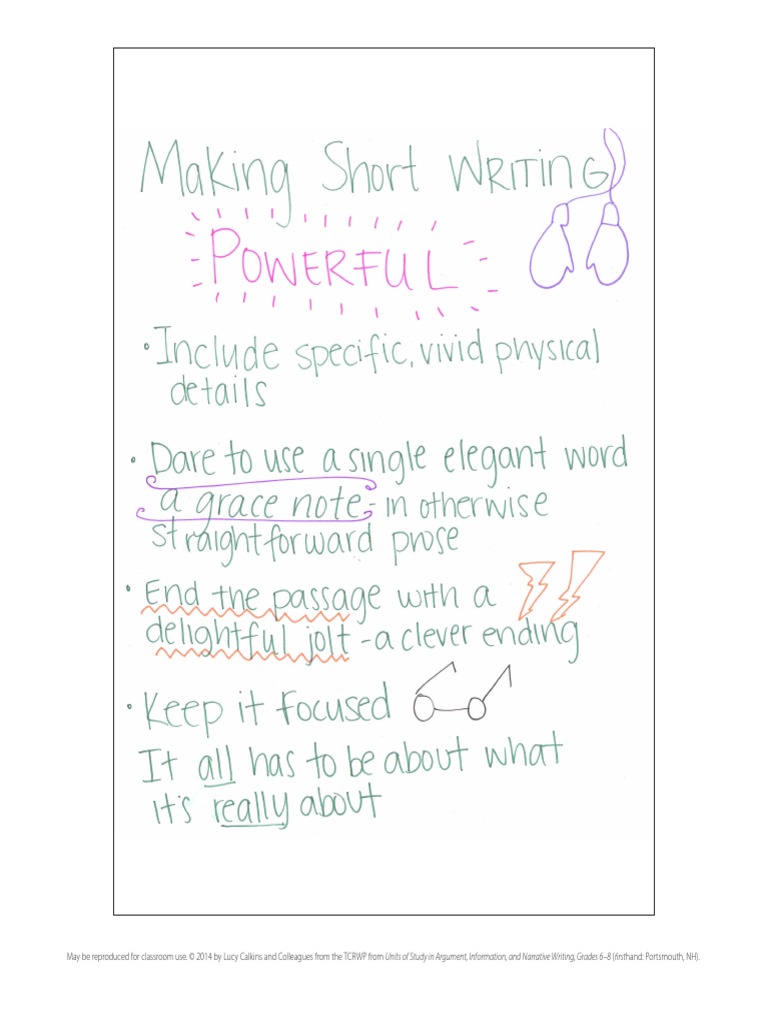 Making Short WRITING
POWERFUL
• Include specific, vivid physical
details
• Dare to use a single elegant word
a grace note - in otherwise
straightforward prose
• End the passage with a
delightful jolt - a clever ending
• Keep it focused
It all has to be about what
it's really about
May be reproduced for classroom use. © 2014 by Lucy Calkins and Colleagues from the TCRWP from Units of Study in Argument, Information, and Narrative Writing, Grades 6–8 (firsthand: Portsmouth, NH).